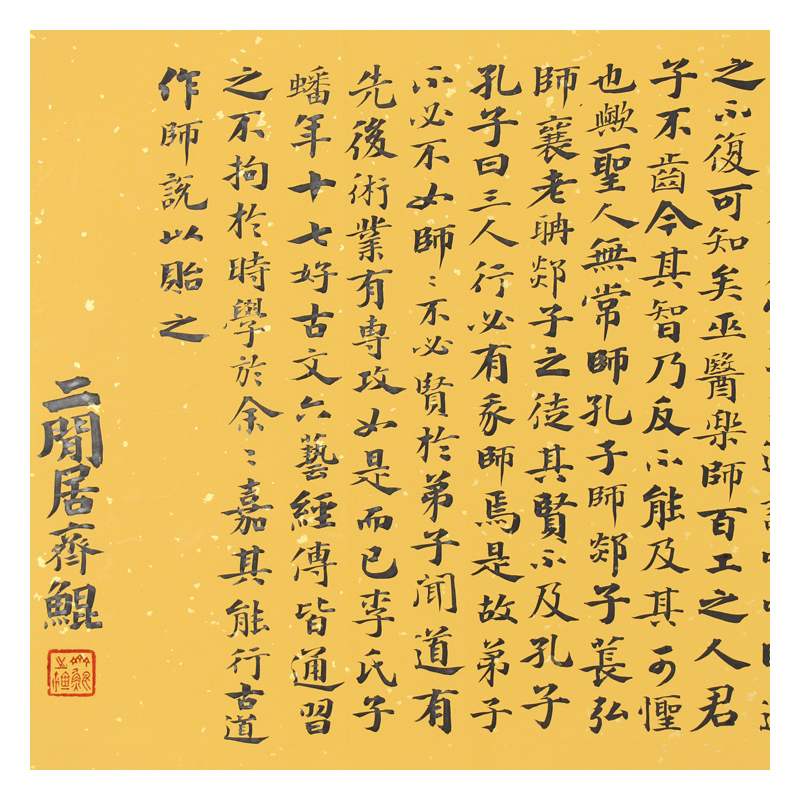 之不復可知矣巫醫樂師百工之人君
子不齒今其智乃反不能及其可怪
也歟聖人無常師孔子師郯子萇弘
師襄老聃郯子之徒其賢不及孔子
孔子曰三人行必有我師焉是故弟子
不必不如師〻不必賢於弟子聞道有
先後術業有專攻如是而已李氏子
蟠年十七好古文六藝經傳皆通習
之不拘於時學於余〻嘉其能行古道
作師說以貽之
二閒居齊鯤